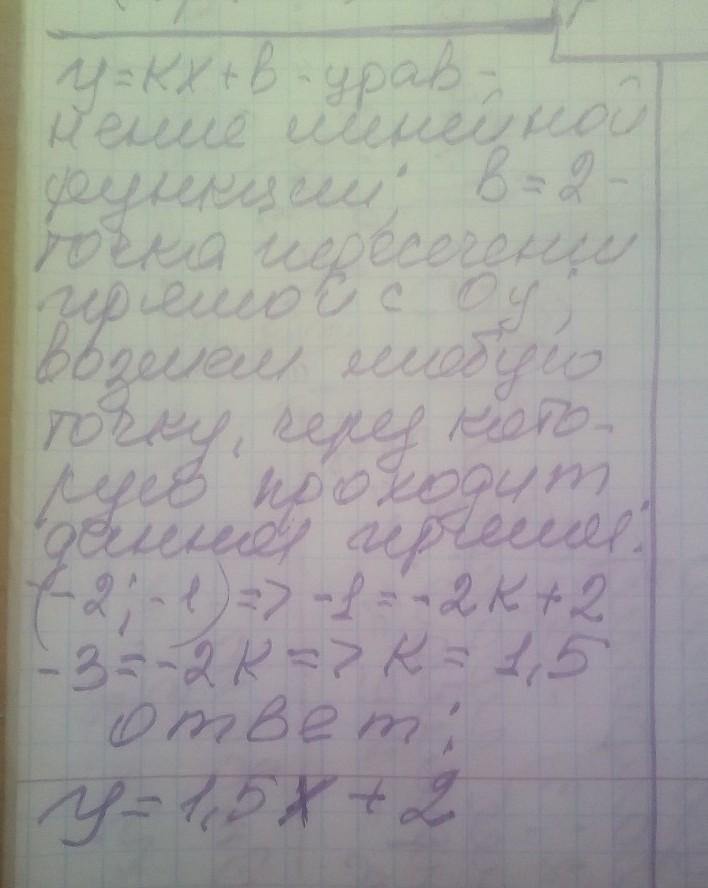 у=кх+в - урав-
нение линейной
функции; в=2-
точка пересечении
прямой с Оу;
возмем любую
точку, через кото-
рую проходит
данная прямая:
(-2; -1) => -1=-2к+2
-3=-2к => к=1,5
ответ:
у=1,5х+2